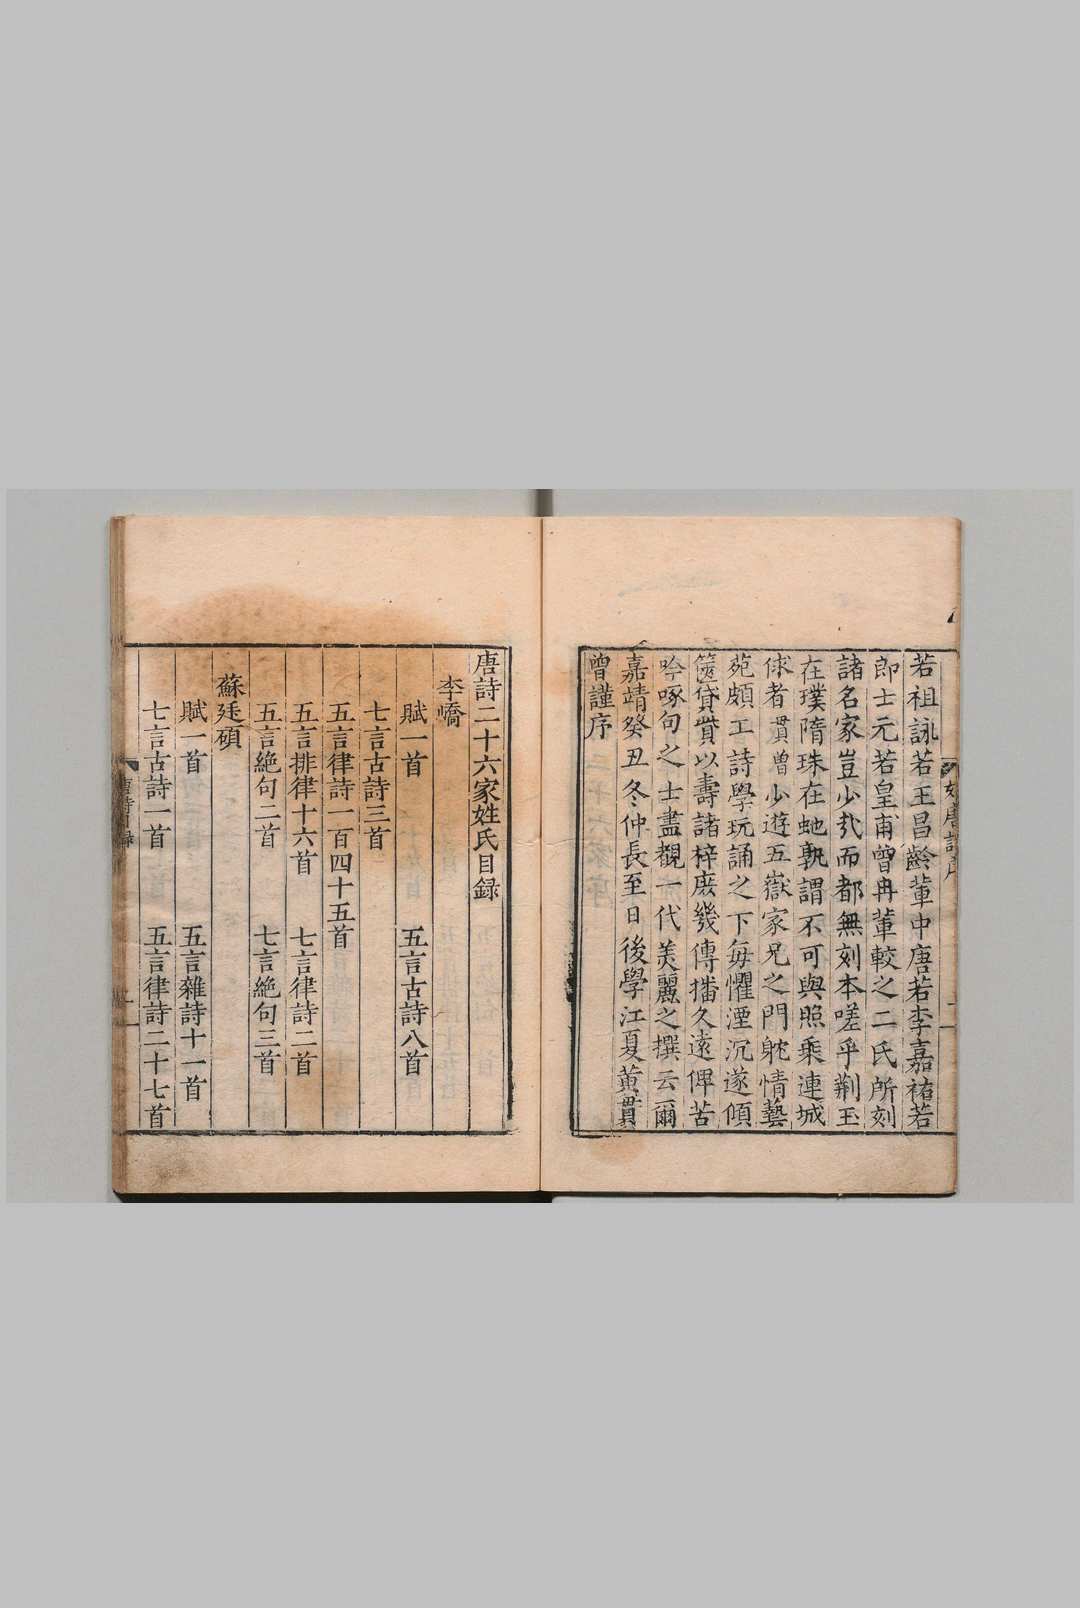 若祖詠若王昌齡軰中唐若李嘉祐若
郎士元若皇甫曾冉軰較之二氏所刻
諸名家豈少㢤而都無刻本嗟乎荆玉
在璞隋珠在虵孰謂不可與照乘連城
俅者貫曾少遊五嶽家兄之門躭情藝
苑頗工詩學玩誦之下每懼湮沉遂傾
篋貸貲以壽諸梓庻㡬傳播久遠俾苦
吟啄句之士盡觀一代美麗之撰云爾
嘉靖癸丑冬仲長至日後學江夏黄貫
曾謹序
唐詩二十六家姓氏目録
李嶠
賦一首 五言古詩八首
七言古詩三首
五言律詩一百四十五首
五言排律十六首 七言律詩二首
五言絶句二首 七言絶句三首
蘇廷碩
賦一首 五言雜詩十一首
七言古詩一首 五言律詩二十七首
唐詩目録